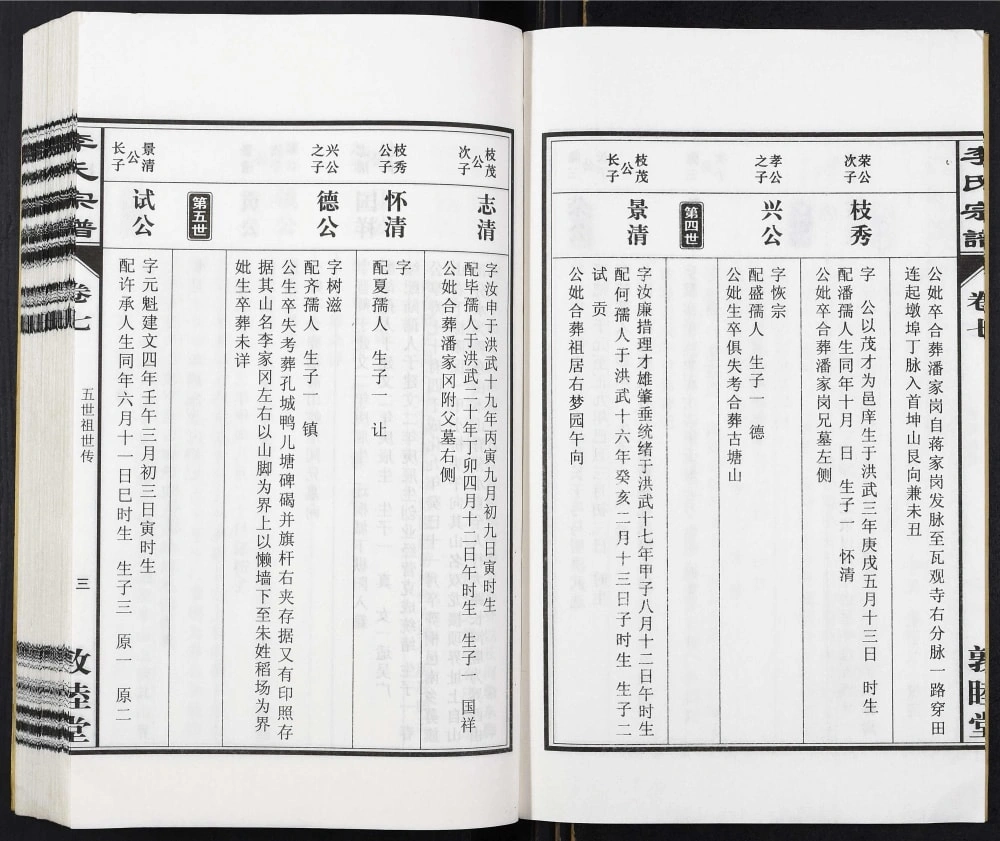 李氏宗谱
卷七
敦睦堂
公妣卒合葬潘家岗自蒋家岗发脉至瓦观寺右分脉一路穿田
连起墩埠丁脉入首坤山艮向兼未丑
荣公次子
枝秀
字 公以茂才为邑庠生于洪武三年庚戌五月十三日 时生
配潘孺人生同年十月 日 生子一 怀清
公妣卒合葬潘家岗兄墓左侧
孝公之子
兴公
字恢宗
配盛孺人 生子一 德
公妣生卒俱失考合葬古塘山
第四世
枝茂公长子
景清
字汝廉措理才雄肇垂统绪于洪武十七年甲子八月十二日午时生
配何孺人于洪武十六年癸亥二月十三日子时生 生子二
试 贡
公妣合葬祖居右梦园午向
枝茂公次子
志清
字汝申于洪武十九年丙寅九月初九日寅时生
配毕孺人于洪武二十年丁卯四月十二日午时生 生子一 国祥
公妣合葬潘家冈附父墓右侧
枝秀公子
怀清
字
配夏孺人 生子一 让
兴公之子
德公
字树滋
配齐孺人 生子一 镇
公生卒失考葬孔城鸭儿塘碑碣并旗杆右夹存据又有印照存
据其山名李家冈左右以山脚为界上以懒墙下至朱姓稻场为界
妣生卒葬未详
第五世
景清公长子
试公
字元魁建文四年壬午三月初三日寅时生
配许承人生同年六月十一日巳时生 生子三 原一 原二
李氏宗谱
卷七
五世祖世传
三
敦睦堂